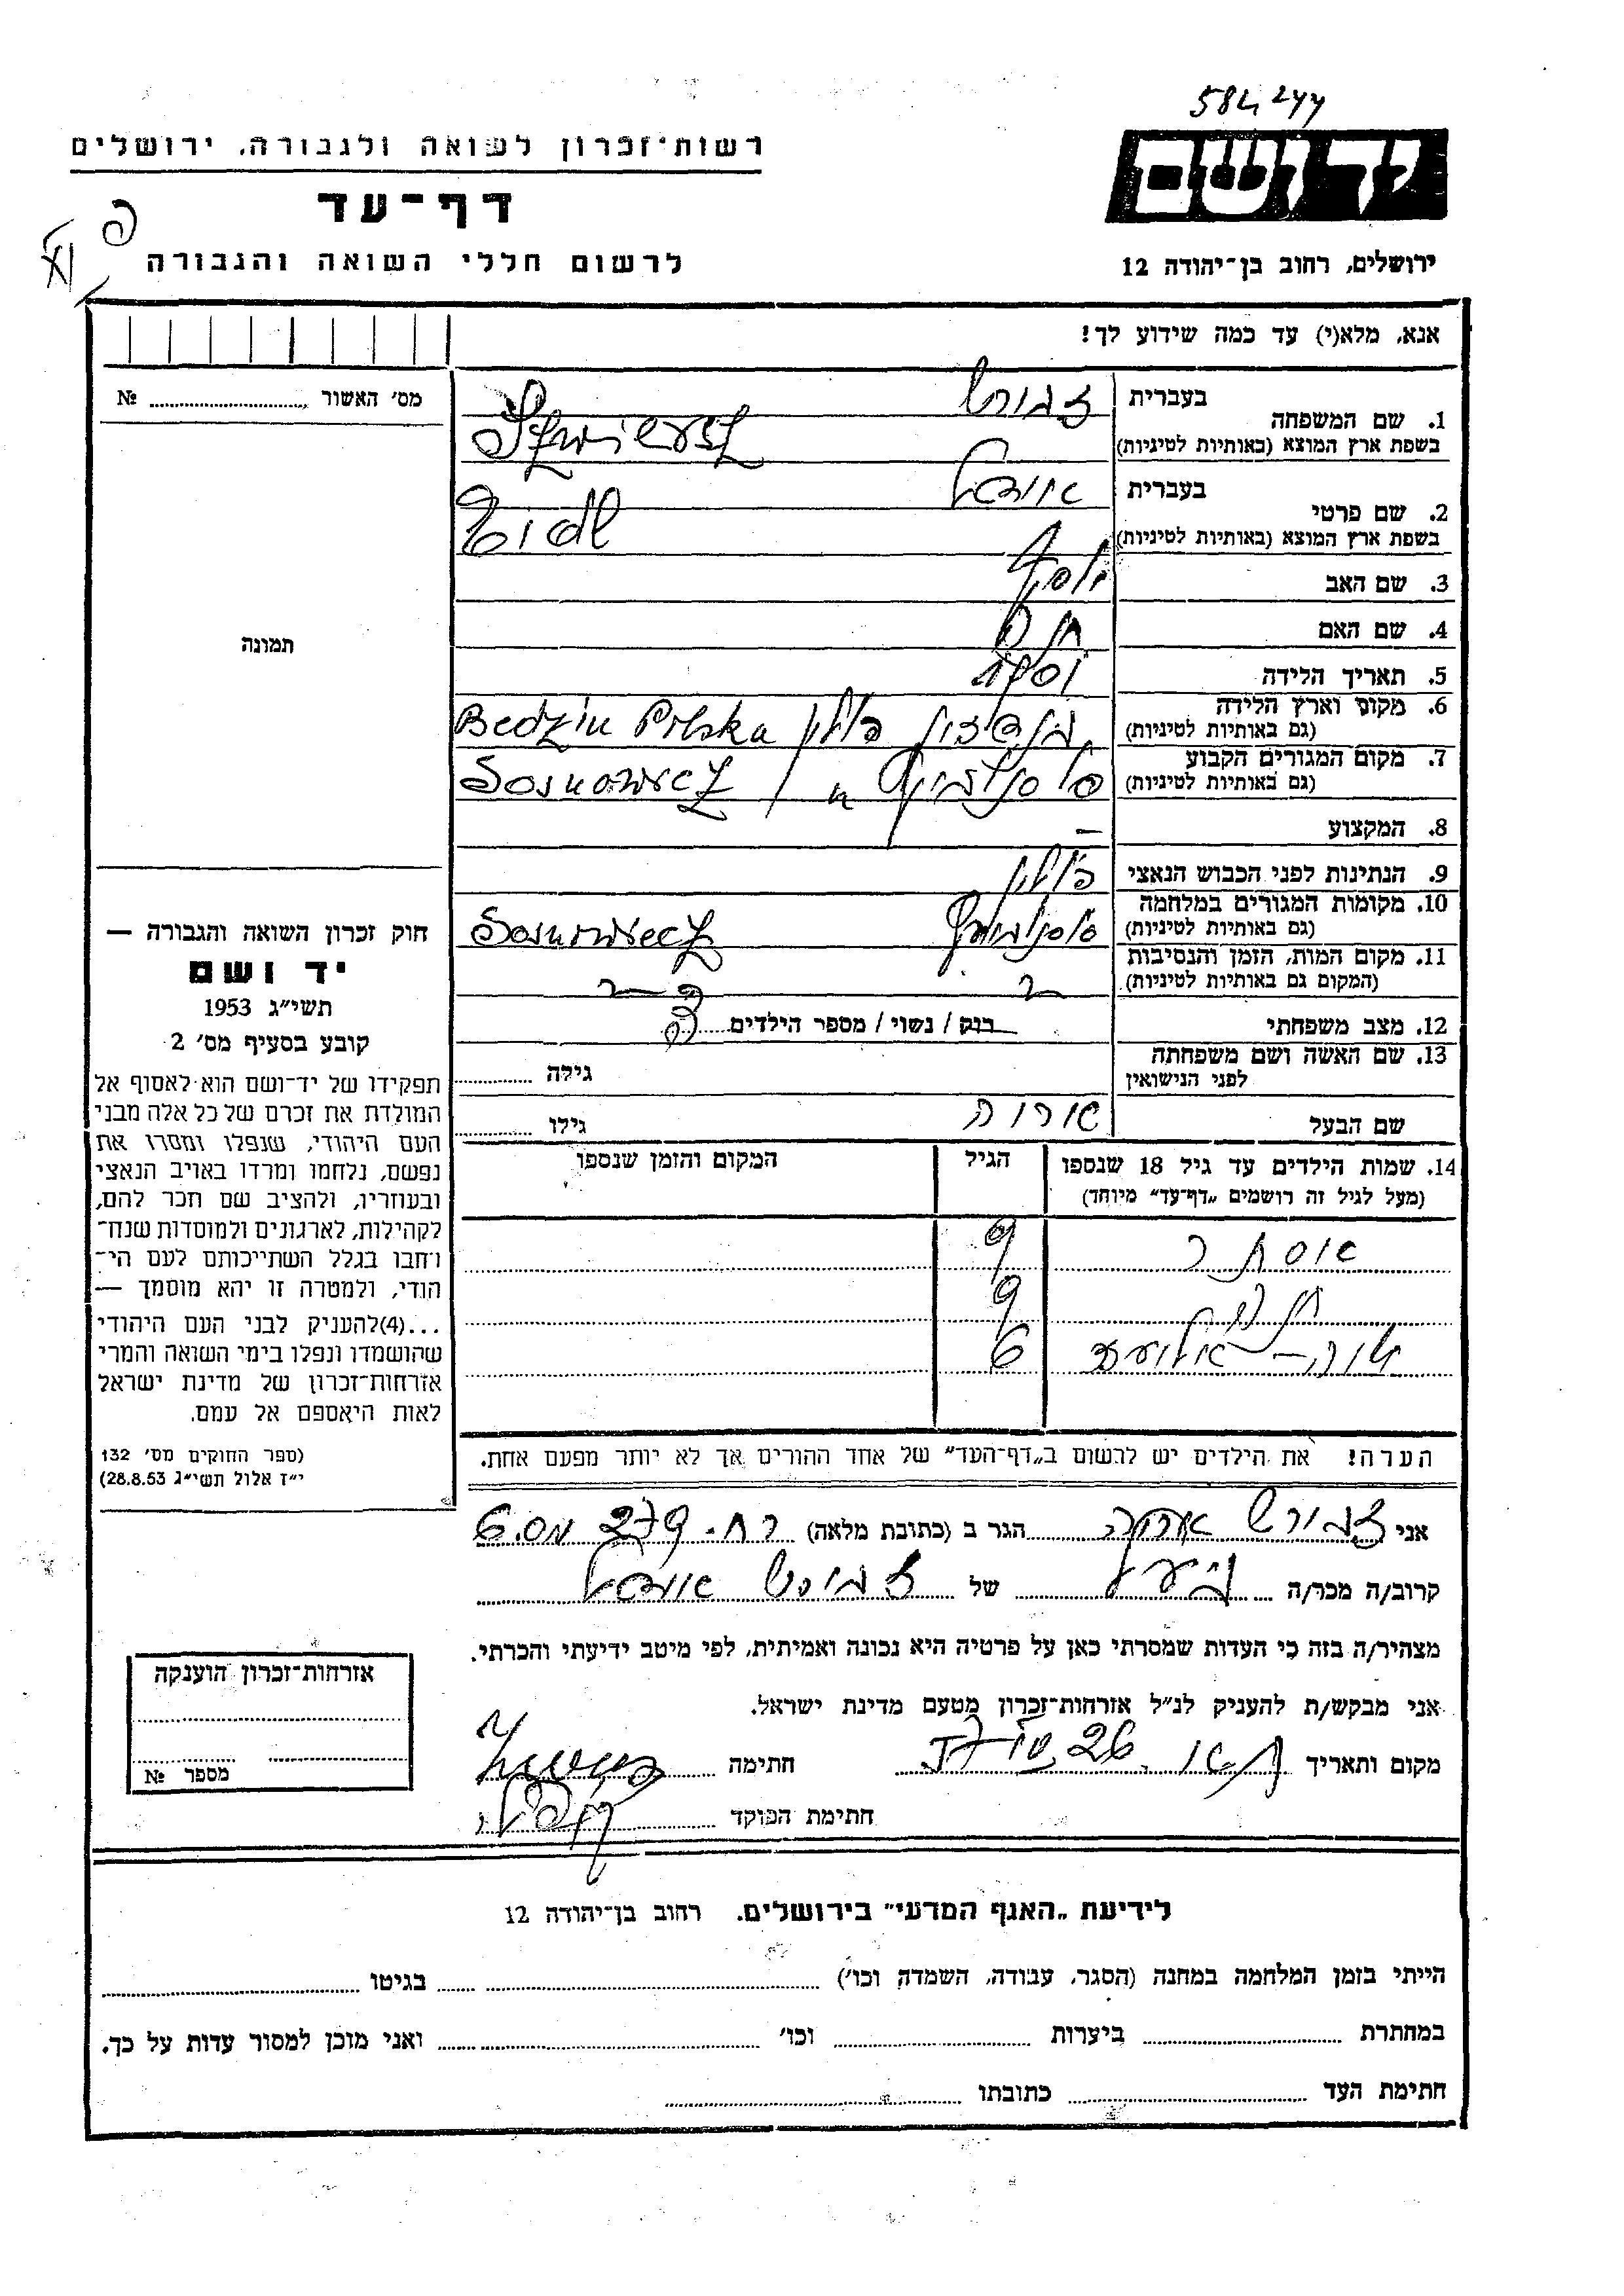 584244
רשות־זכרון לשואה ולגבורה, ירושלים
יד ושם
דף־עד
לרשום חללי השואה והגבורה
ירושלים, רחוב בן־יהודה 12
אנא, מלא(י) עד כמה שידוע לך!
מס׳ האשור № 
1. שם המשפחה
בעברית
בשפת ארץ המוצא (באותיות לטיניות)
2. שם פרטי
בעברית
בשפת ארץ המוצא (באותיות לטיניות)
3. שם האב יוסף
4. שם האם
5. תאריך הלידה
6. מקום וארץ הלידה
(גם באותיות לטיניות) פולין Bedzin Polska
7. מקום המגורים הקבוע
(גם באותיות לטיניות) Sosnowiec
8. המקצוע –
9. הנתינות לפני הכבוש הנאצי פולין
10. מקומות המגורים במלחמה
(גם באותיות לטיניות) Sosnowiec
11. מקום המות, הזמן והנסיבות
(המקום גם באותיות לטיניות)
12. מצב משפחתי רווק / נשוי / מספר הילדים
13. שם האשה ושם משפחתה
לפני הנישואין
גילה
שם הבעל
גילו
14. שמות הילדים עד גיל 18 שנספו
(מעל לגיל זה רושמים „דף־עד” מיוחד)
הגיל
המקום והזמן שנספו
אסתר 9
9
6
הערה! את הילדים יש לרשום ב„דף־העד” של אחד ההורים אך לא יותר מפעם אחת.
תמונה
חוק זכרון השואה והגבורה —
יד ושם
תשי״ג 1953
קובע בסעיף מס׳ 2
תפקידו של יד־ושם הוא לאסוף אל
המולדת את זכרם של כל אלה מבני
העם היהודי, שנפלו ומסרו את
נפשם, נלחמו ומרדו באויב הנאצי
ובעוזריו, ולהציב שם וזכר להם,
לקהילות, לארגונים ולמוסדות שנח־
רבו בגלל השתייכותם לעם הי־
הודי, ולמטרה זו יהא מוסמך —
...(4)להעניק לבני העם היהודי
שהושמדו ונפלו בימי השואה והמרי
אזרחות־זכרון של מדינת ישראל
לאות היאספם אל עמם.
(ספר החוקים מס׳ 132
י״ז אלול תשי״ג 28.8.53)
אני הגר ב (כתובת מלאה) רח. 279 מס. 6
קרוב/ה מכר/ה של
מצהיר/ה בזה כי העדות שמסרתי כאן על פרטיה היא נכונה ואמיתית, לפי מיטב ידיעתי והכרתי.
אני מבקש/ת להעניק לנ״ל אזרחות־זכרון מטעם מדינת ישראל.
מקום ותאריך 26 חתימה
חתימת הפוקד
אזרחות־זכרון הוענקה
מספר №
לידיעת „האגף המדעי” בירושלים. רחוב בן־יהודה 12
הייתי בזמן המלחמה במחנה (הסגר, עבודה, השמדה וכו׳) בגיטו
במחתרת ביערות וכו׳ ואני מוכן למסור עדות על כך.
חתימת העד כתובתו